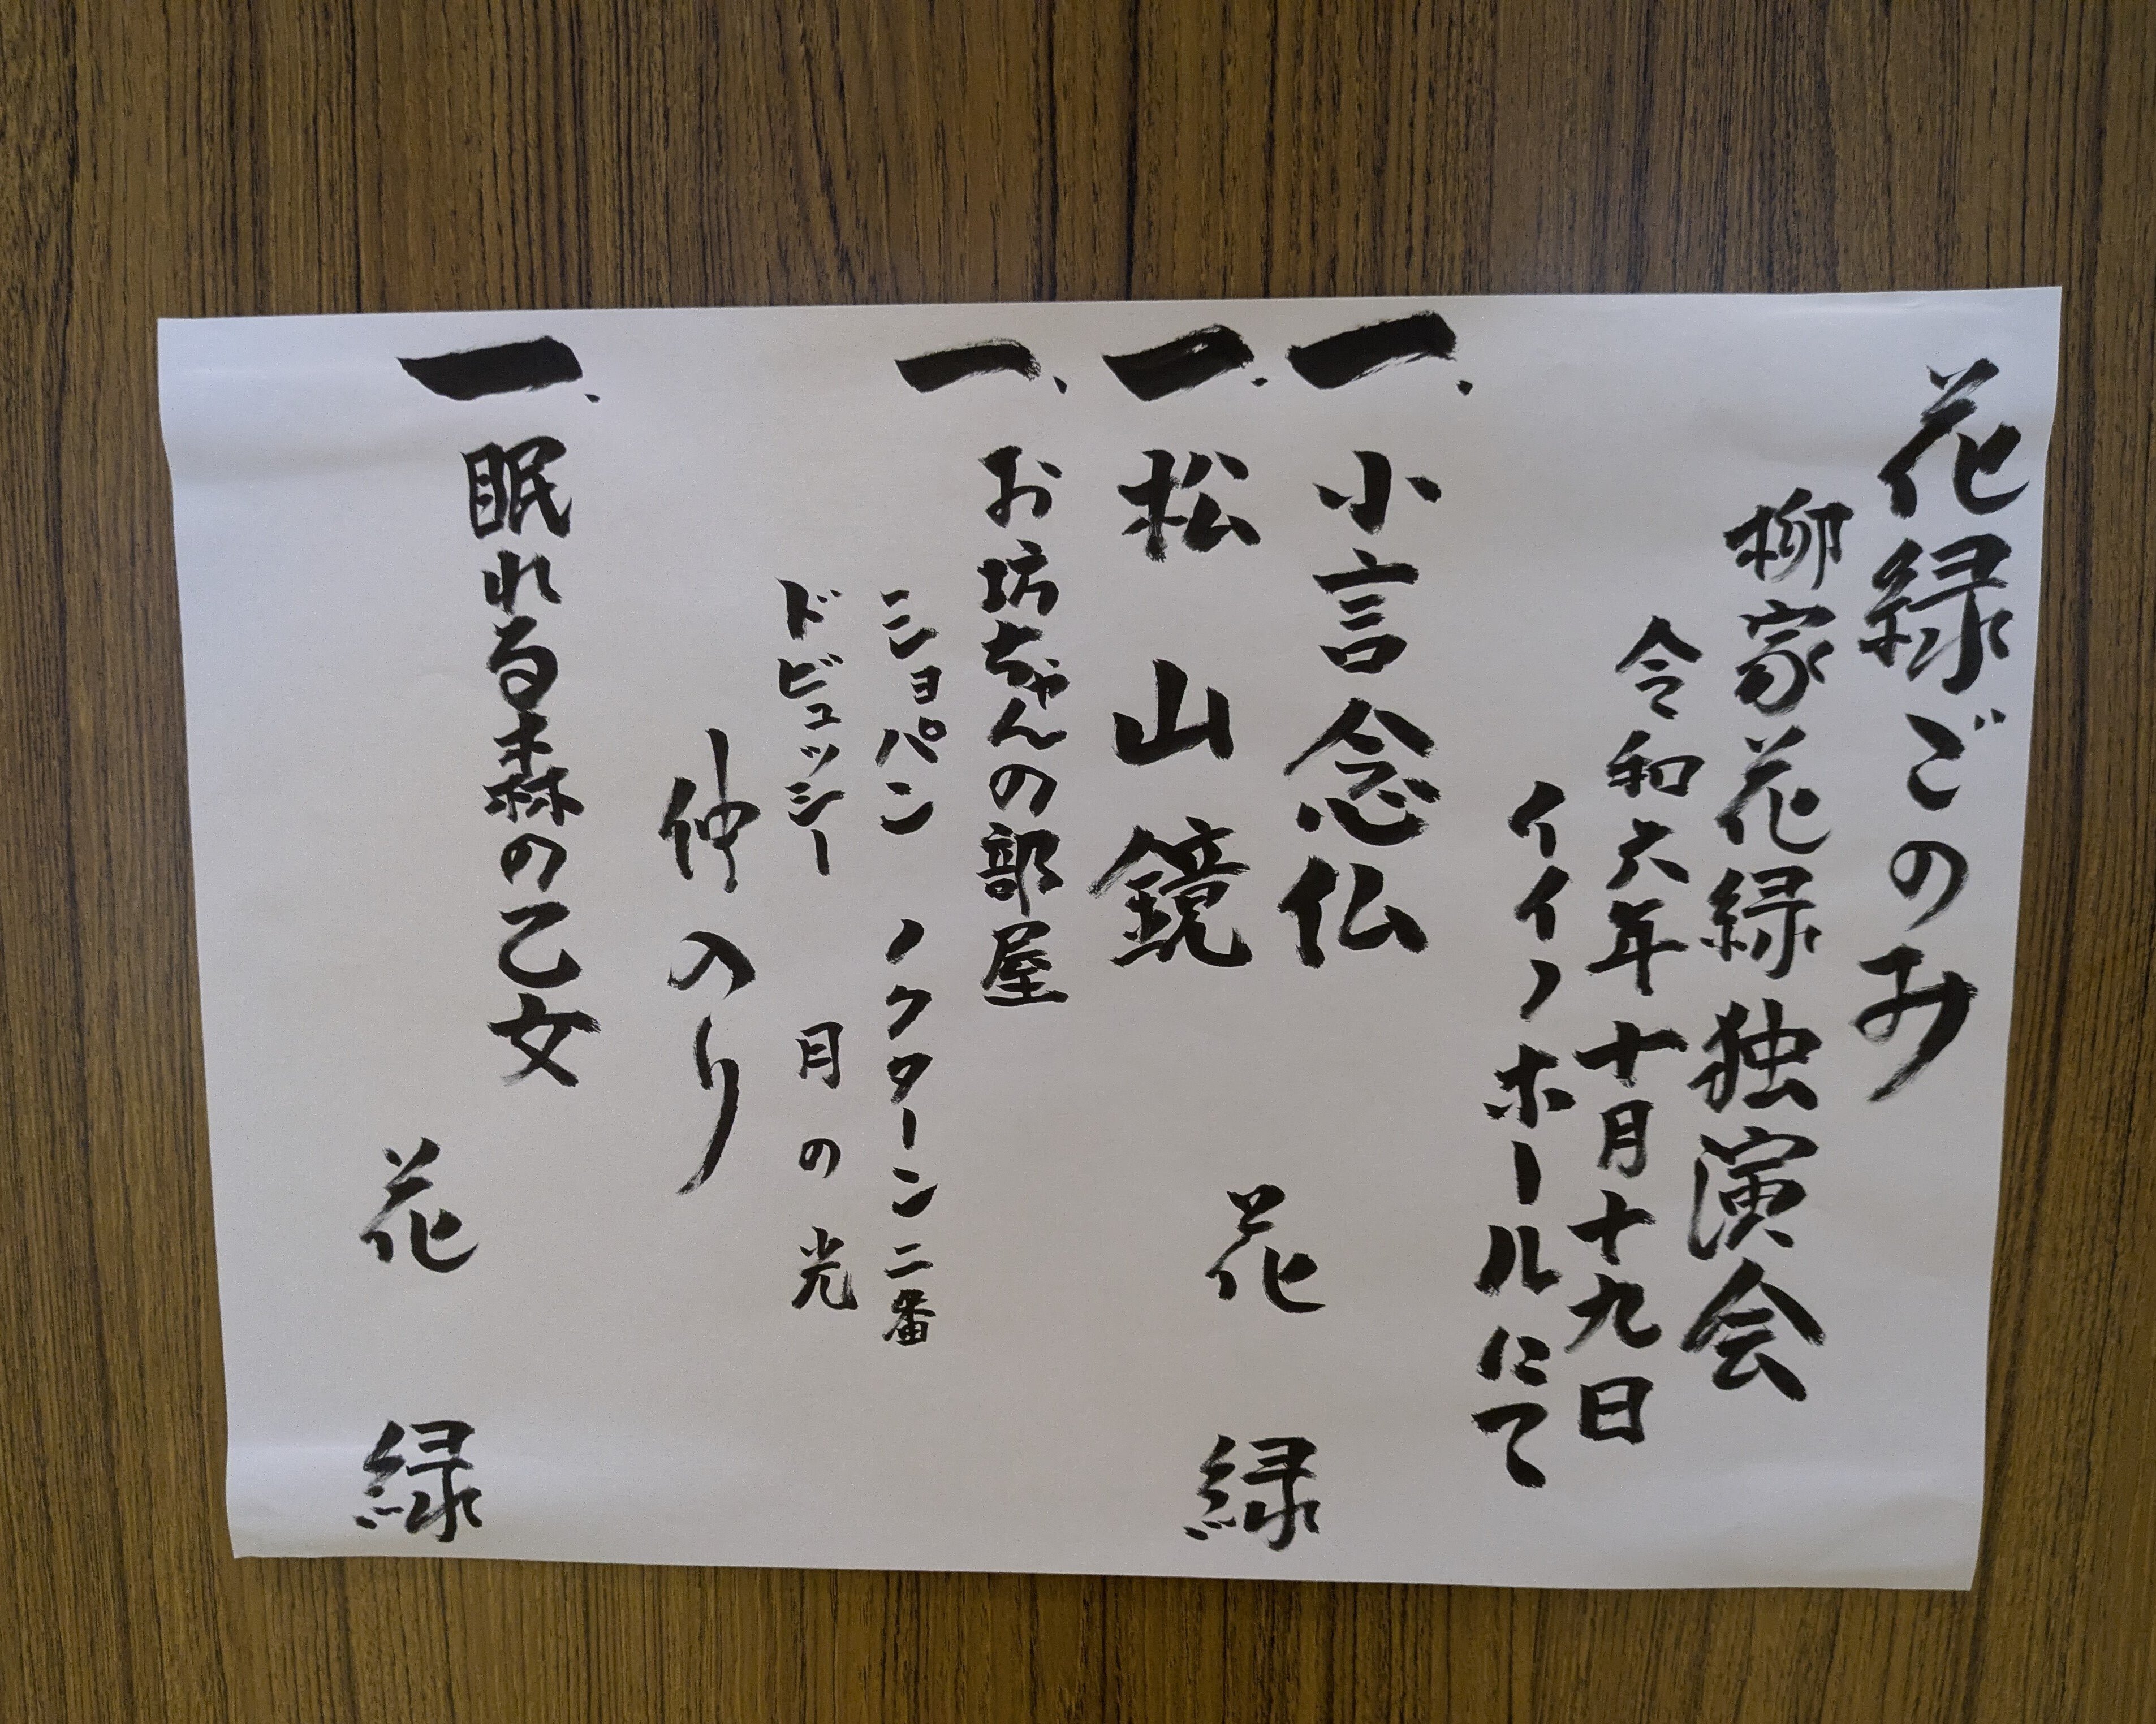 花緑ごのみ
柳家花緑独演会
令和六年十月十九日
イイノホールにて
一、小言念仏
一、松山鏡
花緑
一、お坊ちゃんの部屋
ショパン ノクターン二番
ドビュッシー 月の光
仲入り
一、眠れる森の乙女
花緑